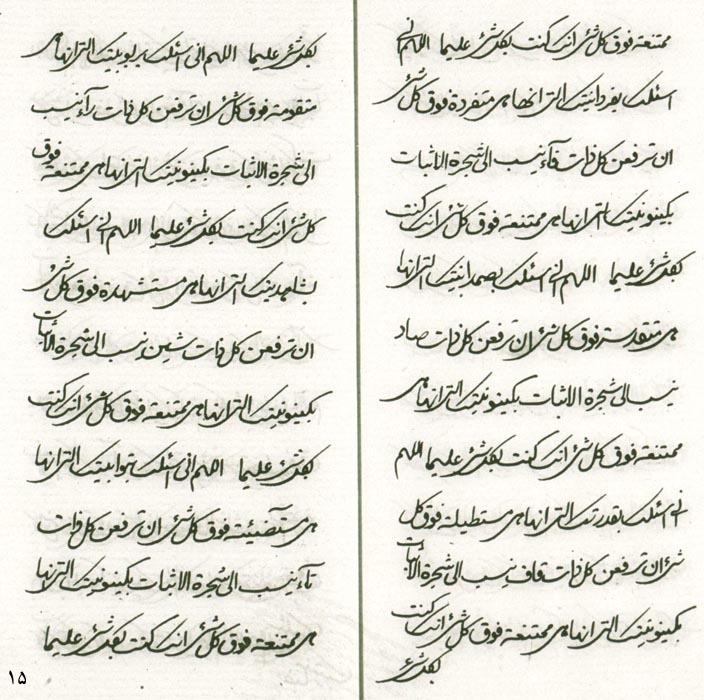 ممتنعة فوق كل شئ انك كنت بكل شئ عليما اللهم اني
اسئلك بفردانيتك التي انها هي متفردة فوق كل شئ
ان ترفعن كل ذات فآء ينسب الى شجرة الاثبات
بكينونيتك التي انها هي ممتنعة فوق كل شئ انك كنت
بكل شئ عليما اللهم اني اسئلك بصمدانيتك التي انها
هي متقدسة فوق كل شئ ان ترفعن كل ذات صاد
ينسب الى شجرة الاثبات بكينونيتك التي انها هي
ممتنعة فوق كل شئ انك كنت بكل شئ عليما اللهم
اني اسئلك بقدرتك التي انها هي مستطيلة فوق كل
شئ ان ترفعن كل ذات قاف ينسب الى شجرة الاثبات
بكينونيتك التي انها هي ممتنعة فوق كل شئ انك كنت
بكل شئ
بكل شئ عليما اللهم اني اسئلك بربوبيتك التي انها هي
متقومة فوق كل شئ ان ترفعن كل ذات رآء ينسب
الى شجرة الاثبات بكينونيتك التي انها هي ممتنعة فوق
كل شئ انك كنت بكل شئ عليما اللهم اني اسئلك
بشاهديتك التي انها هي مستشهدة فوق كل شئ
ان ترفعن كل ذات شين ينسب الى شجرة الاثبات
بكينونيتك التي انها هي ممتنعة فوق كل شئ انك كنت
بكل شئ عليما اللهم اني اسئلك بتوابيتك التي انها
هي مستضيئة فوق كل شئ ان ترفعن كل ذات
تآء ينسب الى شجرة الاثبات بكينونيتك التي انها
هي ممتنعة فوق كل شئ انك كنت بكل شئ عليما
١٥